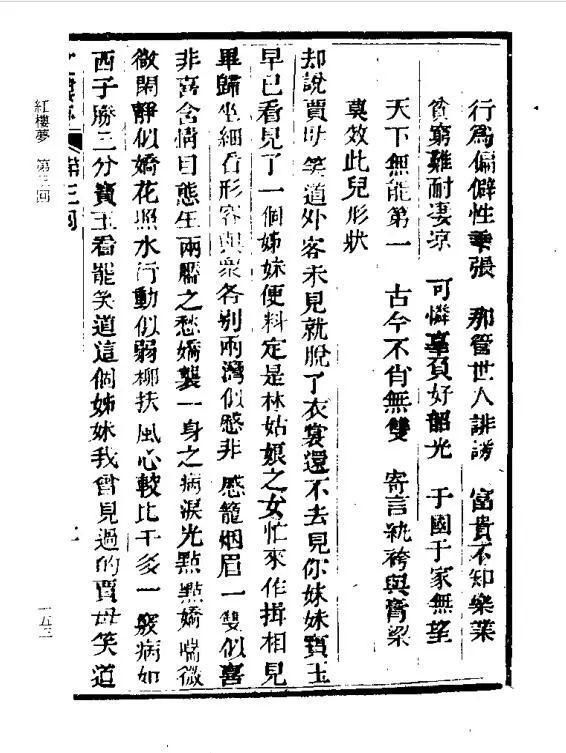 行為偏僻性乖張　那管世人誹謗　富貴不知樂業
貧窮難耐凄凉　可憐辜負好韶光　于國于家無望
天下無能第一　古今不肖無雙　寄言紈袴與膏粱
莫效此兒形狀
却說賈母笑道外客未見就脫了衣裳還不去見你妹妹寶玉
早已看見了一個姊妹便料定是林姑娘之女忙來作揖相見
畢歸坐細看形容與衆各別兩灣似感非感籠烟眉一雙似喜
非喜含情目態生兩靨之愁嬌襲一身之病淚光點點嬌喘微
微閑靜似嬌花照水行動似弱柳扶風心較比干多一竅病如
西子勝三分寶玉看罷笑道這個姊妹我曾見過的賈母笑道
第三回
紅樓夢　第三回
一五三